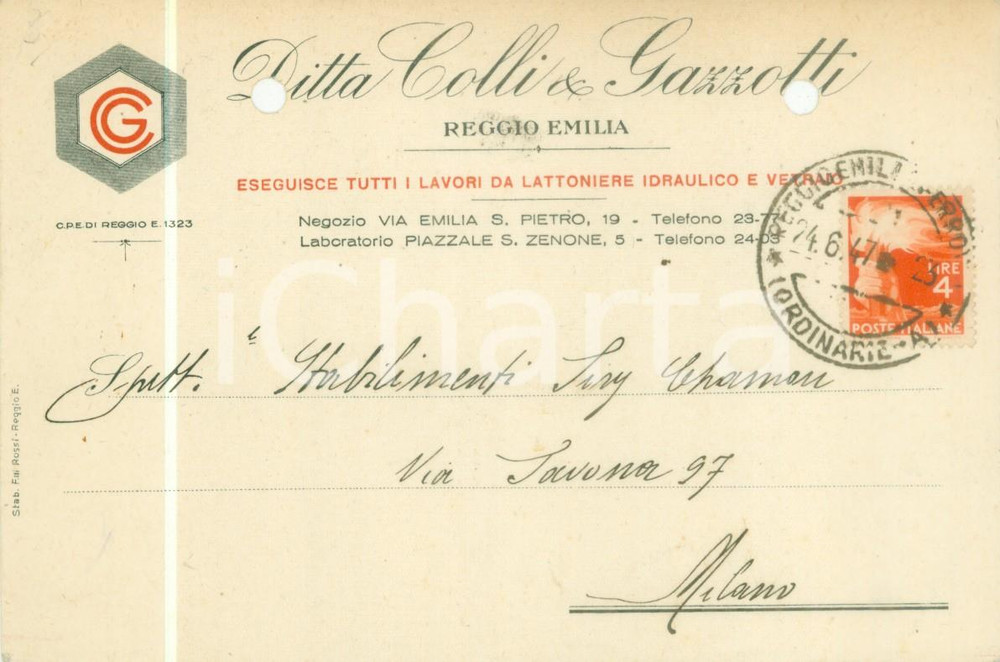 Ditta Colli & Gazzotti
REGGIO EMILIA
ESEGUISCE TUTTI I LAVORI DA LATTONIERE IDRAULICO E VETRAIO
CG
C.P.E. DI REGGIO E. 1323
Negozio VIA EMILIA S. PIETRO, 19 - Telefono 23-77
Laboratorio PIAZZALE S. ZENONE, 5 - Telefono 24-03
REGGIO EMILIA
24.6.47
(ORDINARIE-A
LIRE
4
POSTE ITALIANE
iCharta
Spett. Stabilimenti Siry Chamon
Via Savona 97
Milano
Stab. Fai Rossi - Reggio E.